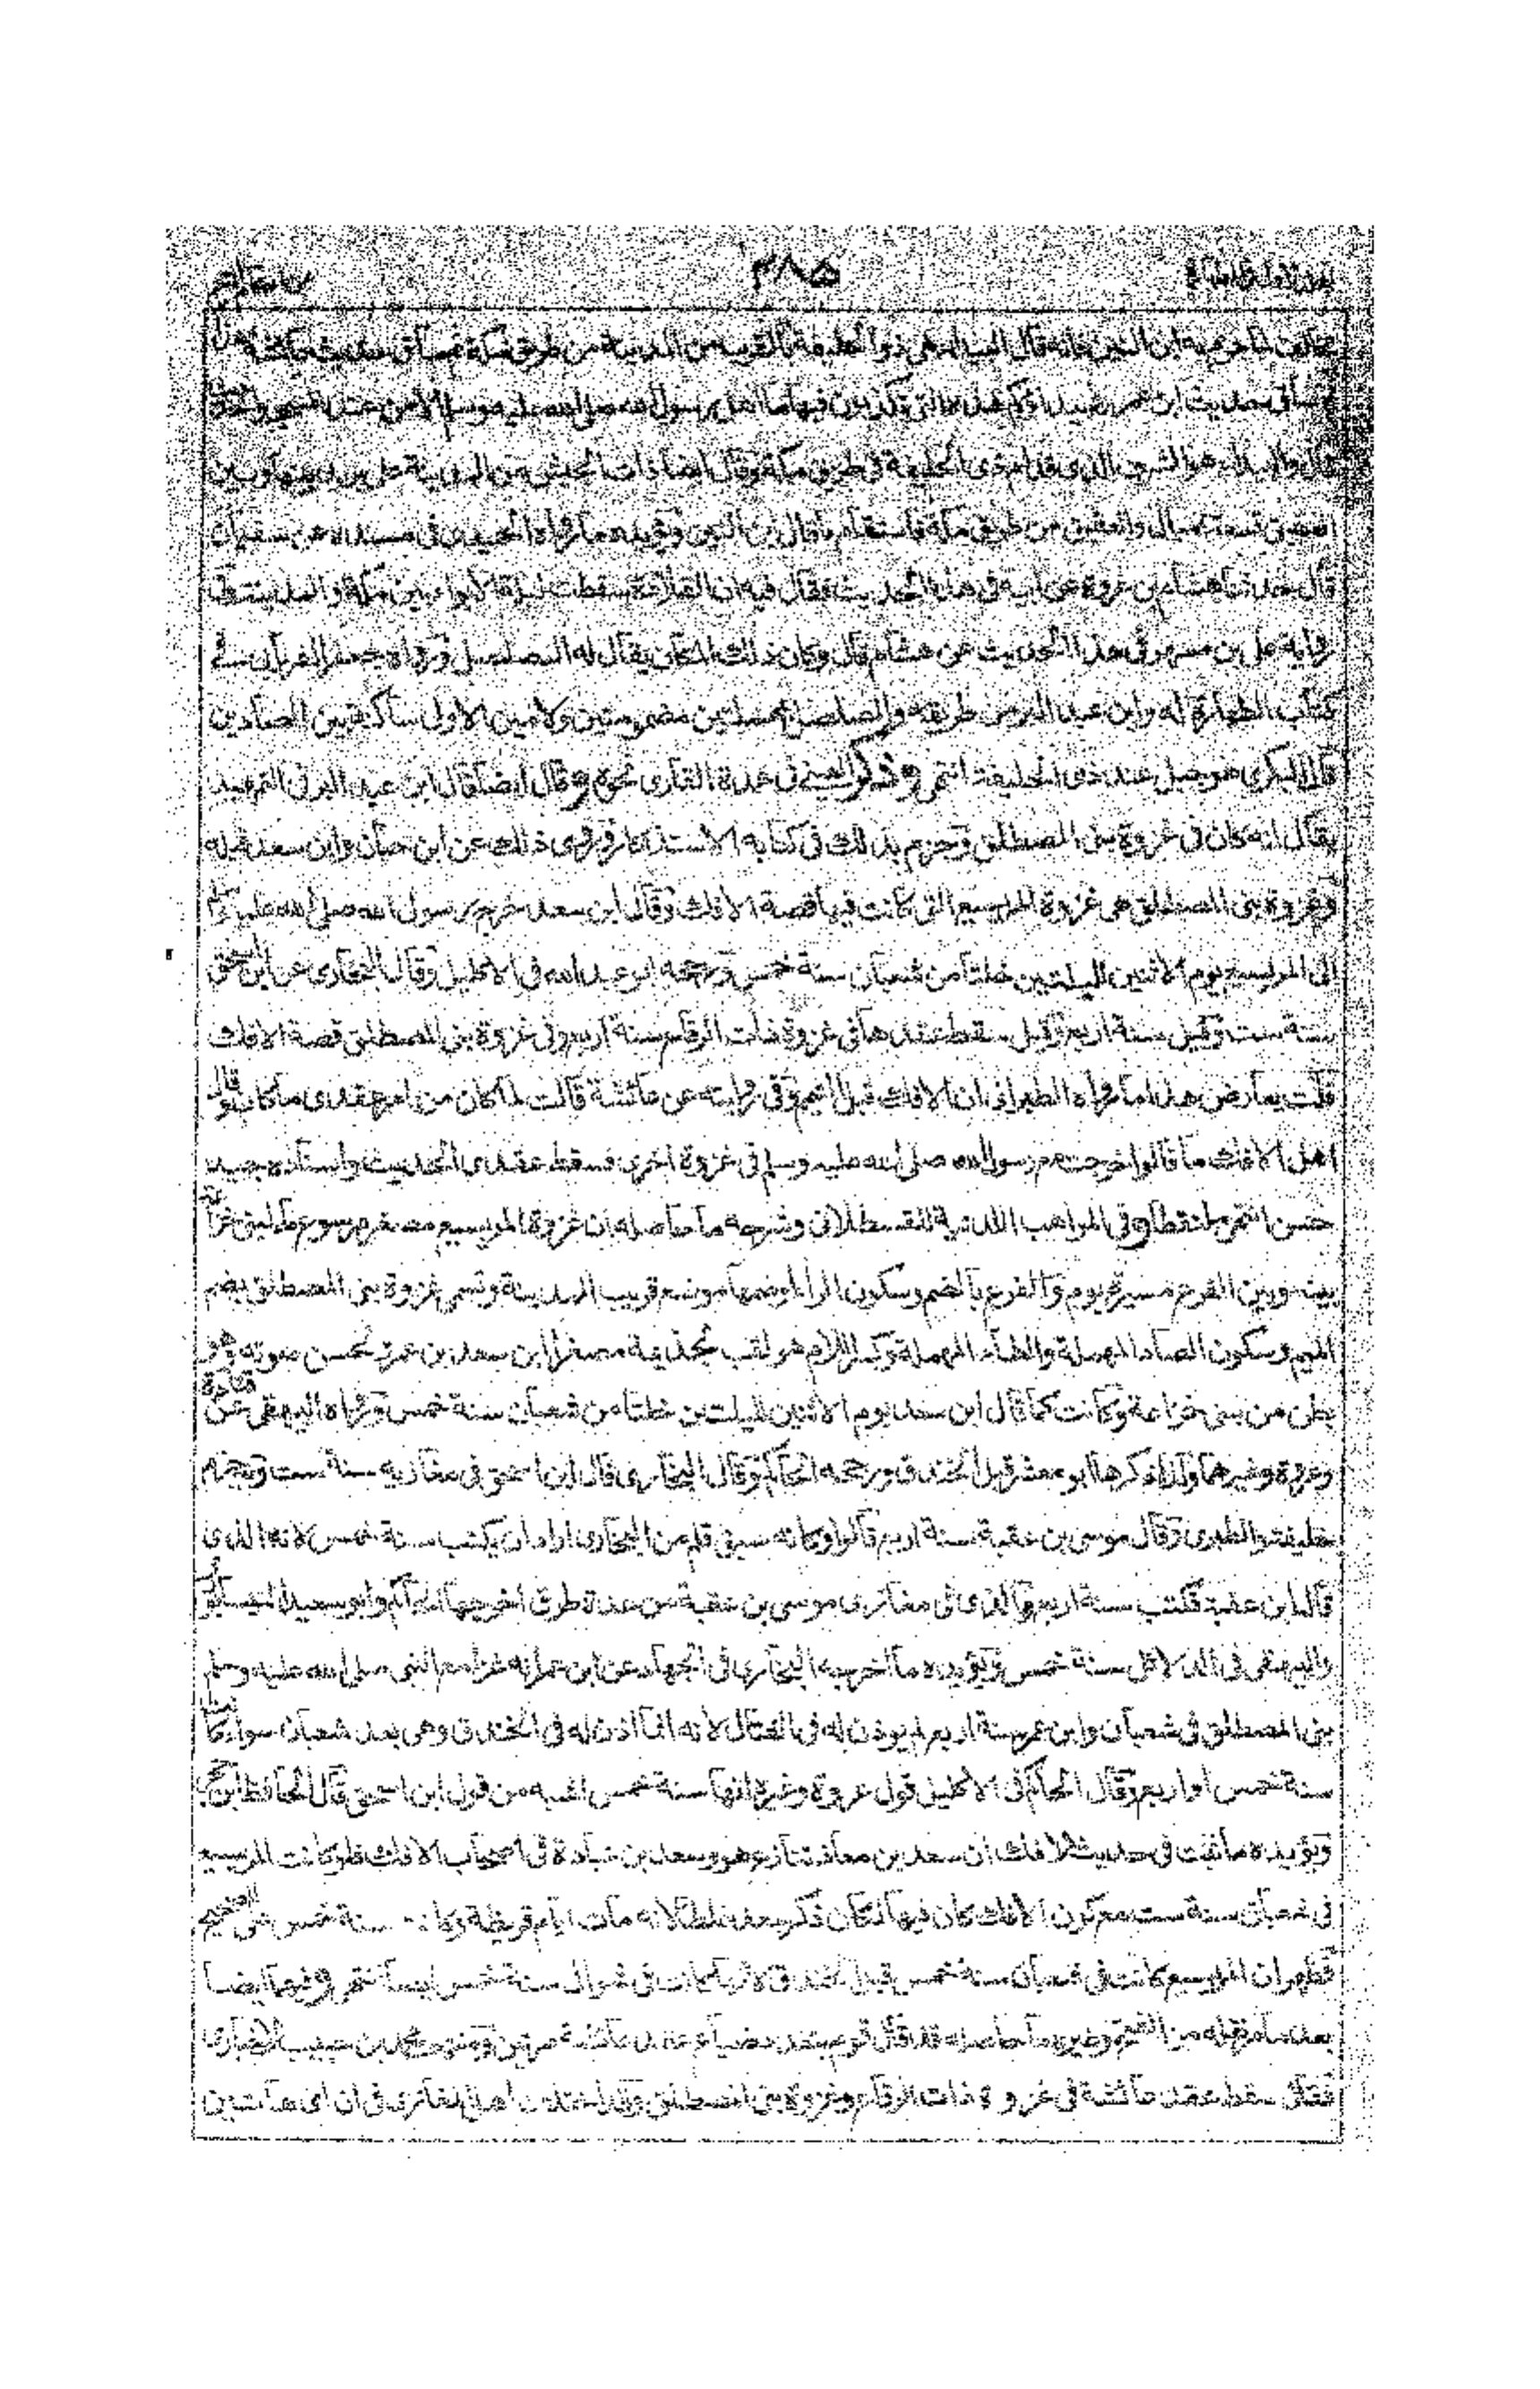 ٣٨٥
مخالف لما جزم به ابن التين فانه قال البيداء هى ذوالحليفة بالقرب من المدينة من طريق مكة ثم ساق حديث عائشة هذا
ثم ساق حديث ابن عمر قال بيداؤكم هذه التى تكذبون فيها ما اهل رسول الله صلى الله عليه وسلم الا من عند المسجد
قال والبيداء هو الشرف الذى قدام ذى الحليفة فى طريق مكة وقال ايضا ذات الجيش من المدينة على بريد وبينها وبين
العقيق سبعة اميال والعقيق من طريق مكة فاستقام ما قال ابن التين ويؤيده ما رواه الحميدى فى مسنده عن سفيان
قال حدثنا هشام بن عروة عن ابيه فى هذا الحديث فقال فيه ان القلادة سقطت ليلة الابواء بين مكة والمدينة
رواية على بن مسهر فى هذا الحديث عن هشام قال وكان ذلك المكان يقال له الصلصل ورواه جعفر الفريابى فى
كتاب الطهارة له وابن عبد البر من طريقه والصلصل بمهملتين مضمومتين ولامين الاولى ساكنة بين الصادين
قال البكرى هو جبل عند ذى الحليفة انتهى وذكر العينى فى عمدة القارى نحوه وقال ايضا قال ابن عبد البر فى التمهيد
يقال انه كان فى غزوة بنى المصطلق وجزم بذلك فى كتابه الاستذكار وروى ذلك عن ابن حبان وابن سعد قبله
وغزوة بنى المصطلق هى غزوة المريسيع التى كانت فيها قصة الافك وقال ابن سعد خرج رسول الله صلى الله عليه وسلم
الى المريسيع يوم الاثنين لليلتين خلتا من شعبان سنة خمس ورجحه ابو عبد الله فى الاكليل وقال البخارى عن ابن اسحق
سنة ست وقيل سنة اربع وقيل سقط عقدها فى غزوة ذات الرقاع سنة اربع وفى غزوة بنى المصطلق قصة الافك
قلت يعارض هذا ما رواه الطبرانى ان الافك قبل التيمم وفى روايته عن عائشة قالت لما كان من امر عقدى ما كان وقال
اهل الافك ما قالوا خرجت مع رسول الله صلى الله عليه وسلم فى غزوة اخرى فسقط عقدى الحديث واسناده جيد
حسن انتهى ملتقطا وفى المواهب اللدنية للقسطلانى وشرحه ما حاصله ان غزوة المريسيع مصغر مرسوع ماء لبنى خزاعة
بينه وبين الفرع مسيرة يوم والفرع بالضم وسكون الراء وضمها موضع قريب المدينة وتسمى غزوة بنى المصطلق بضم
الميم وسكون الصاد المهملة والطاء المهملة وكسر اللام هو لقب لجذيمة مصغرا ابن سعد بن عمرو لحسن صوته وهو
بطن من بنى خزاعة وكانت كما قال ابن سعد يوم الاثنين لليلتين خلتا من شعبان سنة خمس ورواه البيهقى عن قتادة
وعروة وغيرهما ولذا ذكرها ابو معشر قبل الخندق ورجحه الحاكم وقال البخارى قال ابن اسحق فى مغازيه سنة ست وبه جزم
خليفة والطبرى وقال موسى بن عقبة سنة اربع قالوا وكانه سبق قلم من البخارى اراد ان يكتب سنة خمس لانه الذى
قاله ابن عقبة فكتب سنة اربع والذى فى مغازى موسى بن عقبة من عدة طرق اخرجها الحاكم وابو سعيد النيسابورى
والبيهقى فى الدلائل سنة خمس ويؤيده ما اخرجه البخارى فى الجهاد عن ابن عمر انه غزا مع النبى صلى الله عليه وسلم
بنى المصطلق فى شعبان وابن عمر سنة اربع لم يوذن له فى القتال لانه انما اذن له فى الخندق وهى بعد شعبان سواء كانت
سنة خمس او اربع وقال الحاكم فى الاكليل قول عروة وغيره انها سنة خمس اشبه من قول ابن اسحق قال الحافظ ابن حجر
ويؤيده ما ثبت فى حديث الافك ان سعد بن معاذ تنازع هو وسعد بن عبادة فى اصحاب الافك فلو كانت المريسيع
فى شعبان سنة ست مع كون الافك كان فيها لكان ذكر سعد غلطا لانه مات ايام قريظة وكانت سنة خمس على الصحيح
فظهر ان المريسيع كانت فى شعبان سنة خمس قبل الخندق لانها كانت فى شوال سنة خمس ايضا انتهى وفيهما ايضا
بعد ما نقلا من الفتح وغيره ما حاصله قد قال قوم بتعدد ضياع عقد عائشة مرتين ومنهم محمد بن حبيب الاخبارى
فقال سقط عقد عائشة فى غزوة ذات الرقاع وغزوة بنى المصطلق وقد اختلف اهل المغازى فى ان اى هاتين